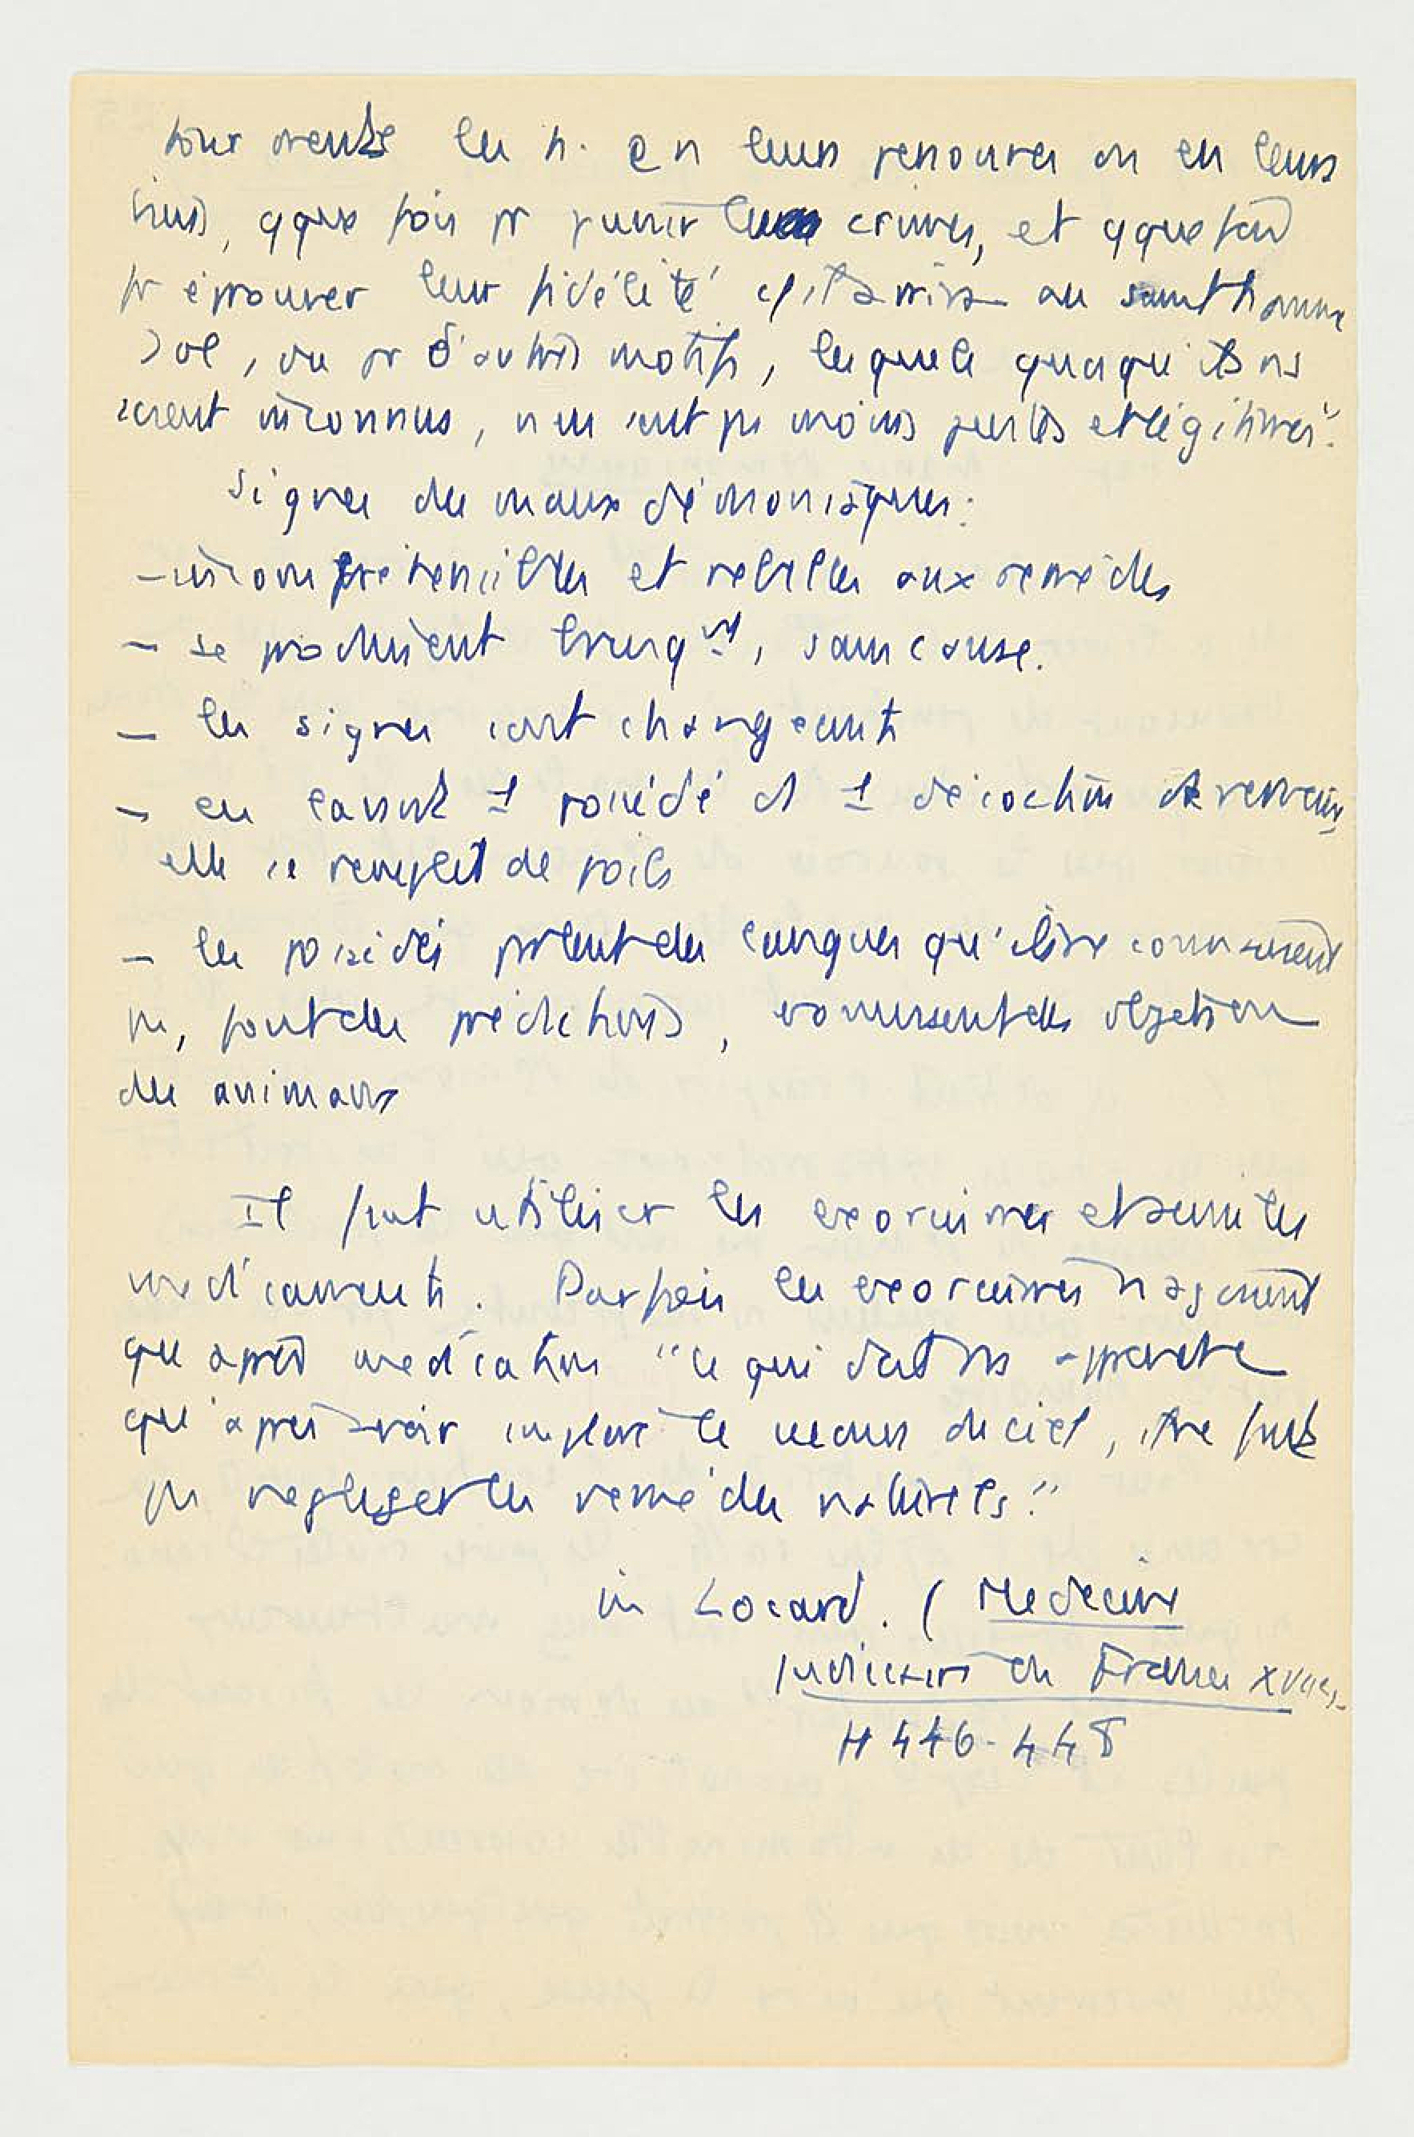 tourmenter les h. en leurs personnes ou en leurs
biens, qque fois pr punir leurs crimes, et qque fois
pr éprouver leur fidélité cf. il arriva au saint homme
Job, ou pr d'autres motifs, lesquels quoiqu'ils ns
soient inconnus, n'en sont pas moins justes et légitimes".
Signes des maux démoniaques :
- incompréhensibles et rebelles aux remèdes
- se produisent brusqnt, sans cause.
- les signes sont changeants
- en lavant 1 possédé ds 1 décoction de verveine,
elle se remplit de poils
- les possédés parlent des langues qu'ils ne connaissent
pas, font des prédictions, vomissent des objets ou
des animaux
Il faut utiliser les exorcismes et aussi les
médicaments. Parfois les exorcismes n'agissent
qu'après médication "ce qui doit ns apprendre
qu'après avoir imploré le secours du ciel, il ne faut
pas négliger les remèdes naturels."
in Locard. (Médecine
judiciaire en France XVIIe s.
H 446-448